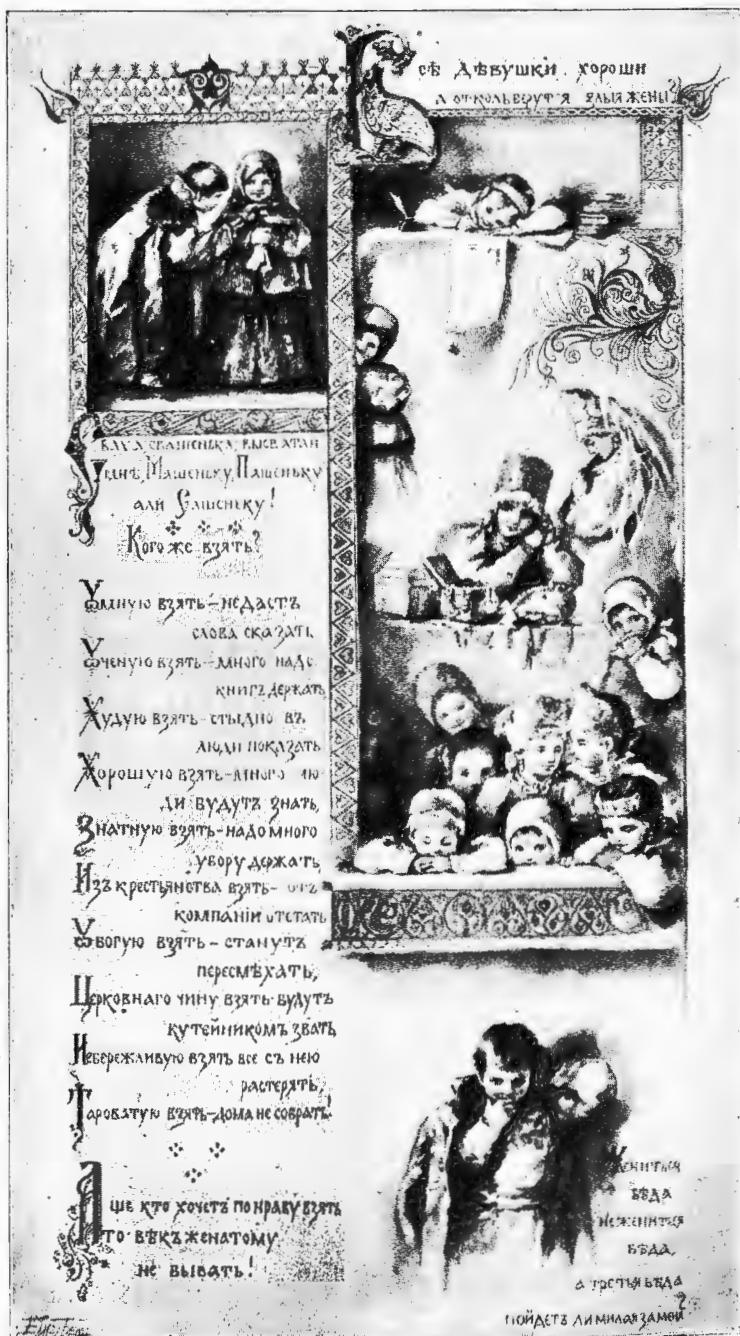 Всѣ дѣвушки хороши
а отколь берутся злыя жены?
сватенька, высватай
мнѣ Машеньку, Пашеньку
али Сашеньку!
Кого же взять?
Умную взять – не дастъ
слова сказать,
Ученую взять – много надо
книгъ держать
Худую взять – стыдно въ
люди показать
Хорошую взять – много лю-
ди будутъ знать,
Знатную взять – надо много
убору держать,
Изъ крестьянства взять – отъ
компаніи отстать
Убогую взять – станутъ
пересмѣхать,
Церковнаго чину взять – будутъ
кутейникомъ звать,
Небережливую взять все съ нею
растерять,
Тароватую взять – дома не собрать!
Аще кто хочетъ по нраву взять
то вѣкъ женатому
не бывать!
Жениться
бѣда
не жениться
бѣда,
а третья бѣда
пойдетъ ли милая за меня?